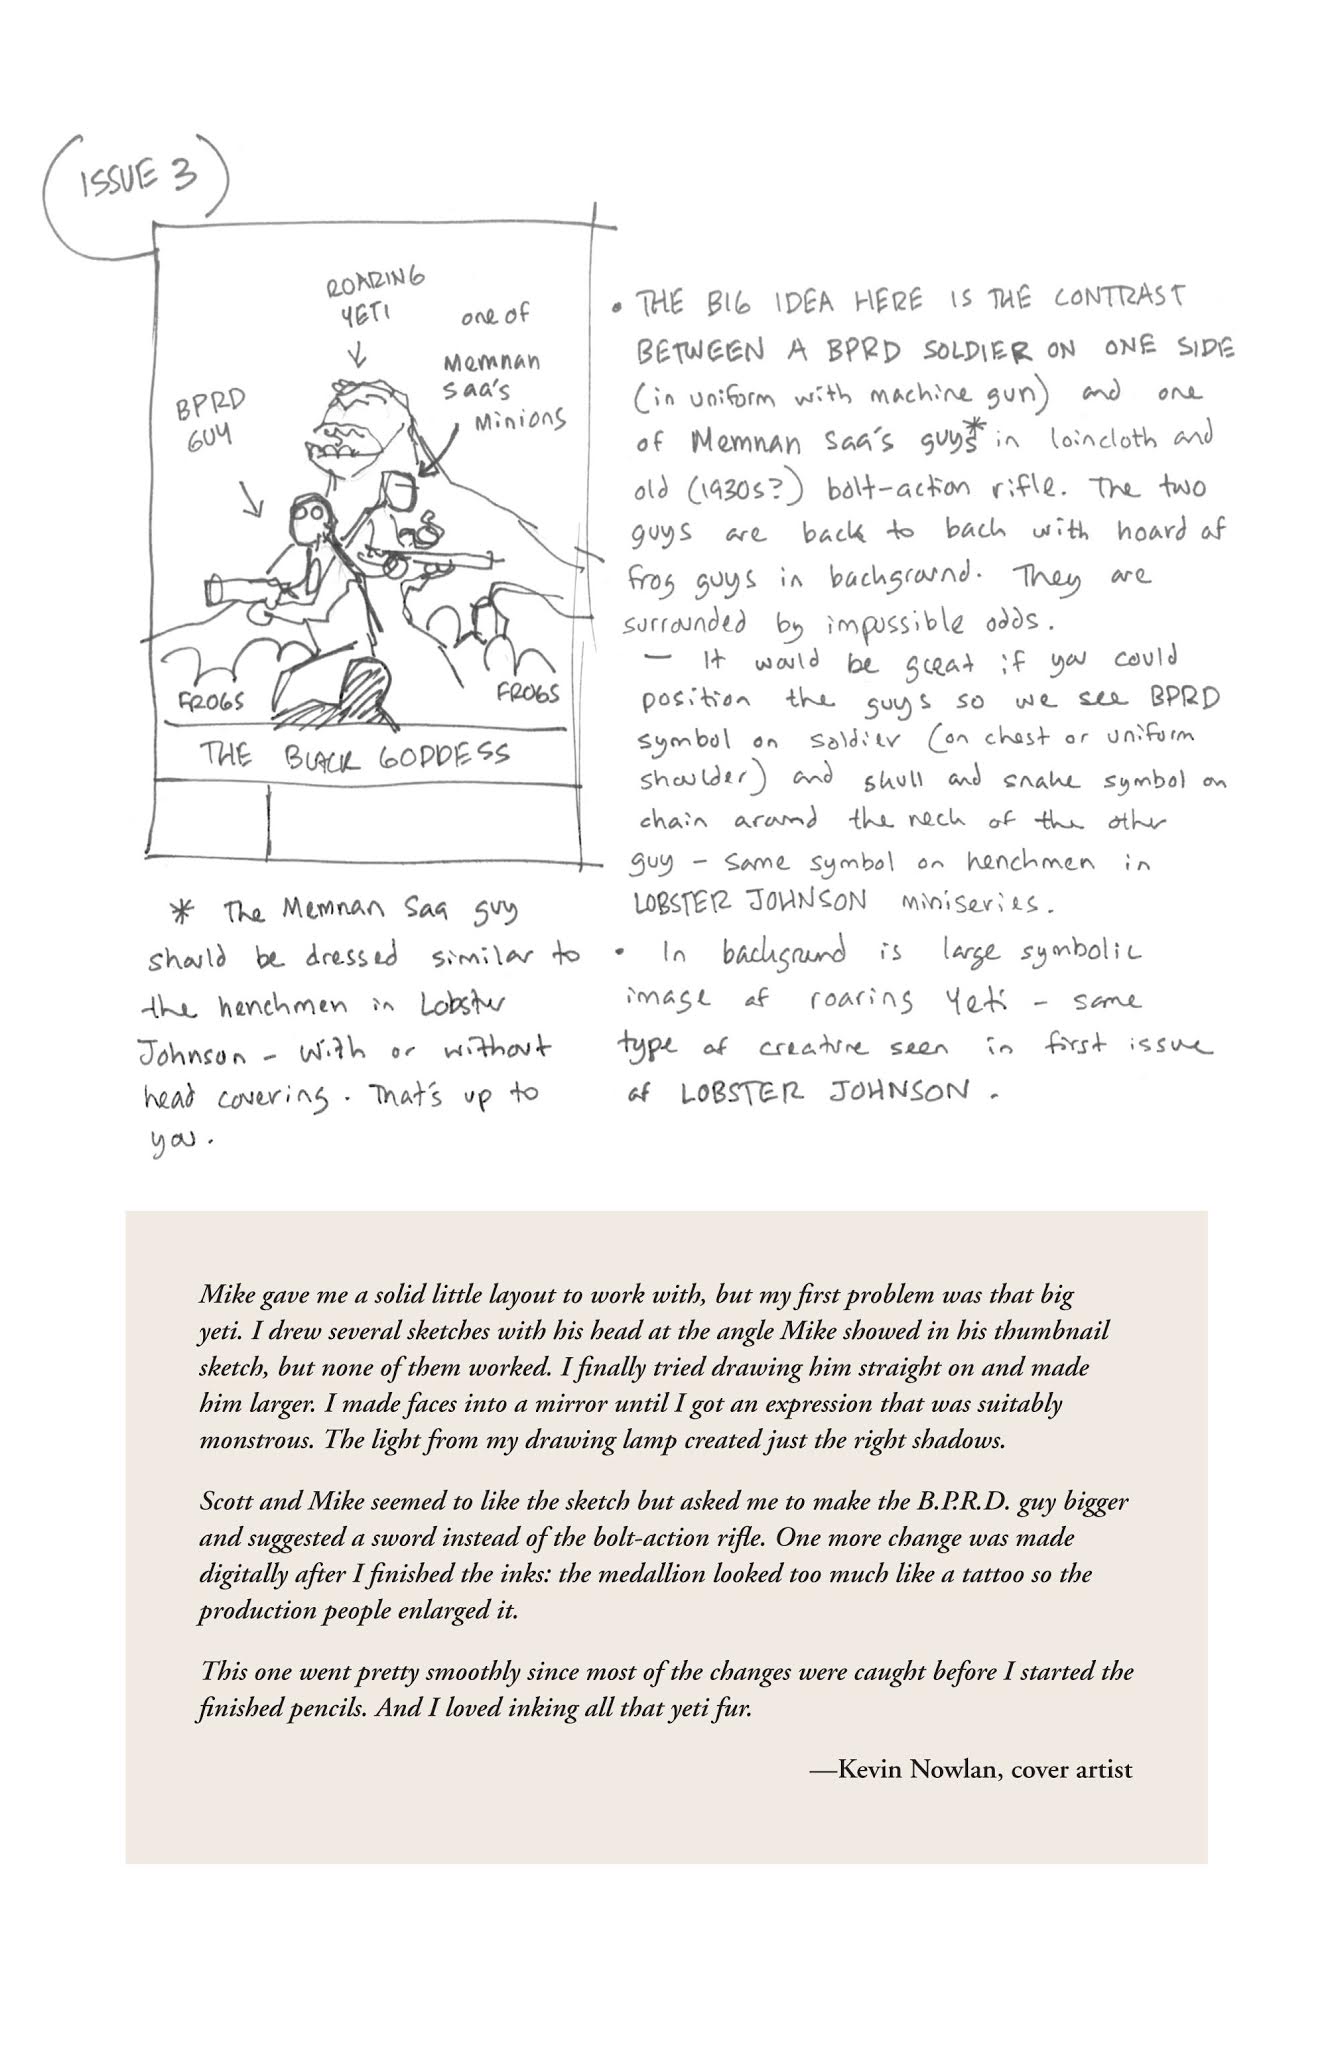 ISSUE 3
ROARING
YETI
one of
Memnan
Saa's
Minions
BPRD
GUY
FROGS
FROGS
THE BLACK GODDESS
• THE BIG IDEA HERE IS THE CONTRAST
BETWEEN A BPRD SOLDIER ON ONE SIDE
(in uniform with machine gun) and one
of Memnan Saa's guys* in loincloth and
old (1930s?) bolt-action rifle. The two
guys are back to back with hoard of
frog guys in background. They are
surrounded by impossible odds.
— It would be great if you could
position the guys so we see BPRD
symbol on soldier (on chest or uniform
shoulder) and skull and snake symbol on
chain around the neck of the other
guy – same symbol on henchmen in
LOBSTER JOHNSON miniseries.
• In background is large symbolic
image of roaring Yeti – same
type of creature seen in first issue
of LOBSTER JOHNSON.
* The Memnan Saa guy
should be dressed similar to
the henchmen in Lobster
Johnson – with or without
head covering. That's up to
you.
Mike gave me a solid little layout to work with, but my first problem was that big
yeti. I drew several sketches with his head at the angle Mike showed in his thumbnail
sketch, but none of them worked. I finally tried drawing him straight on and made
him larger. I made faces into a mirror until I got an expression that was suitably
monstrous. The light from my drawing lamp created just the right shadows.
Scott and Mike seemed to like the sketch but asked me to make the B.P.R.D. guy bigger
and suggested a sword instead of the bolt-action rifle. One more change was made
digitally after I finished the inks: the medallion looked too much like a tattoo so the
production people enlarged it.
This one went pretty smoothly since most of the changes were caught before I started the
finished pencils. And I loved inking all that yeti fur.
—Kevin Nowlan, cover artist